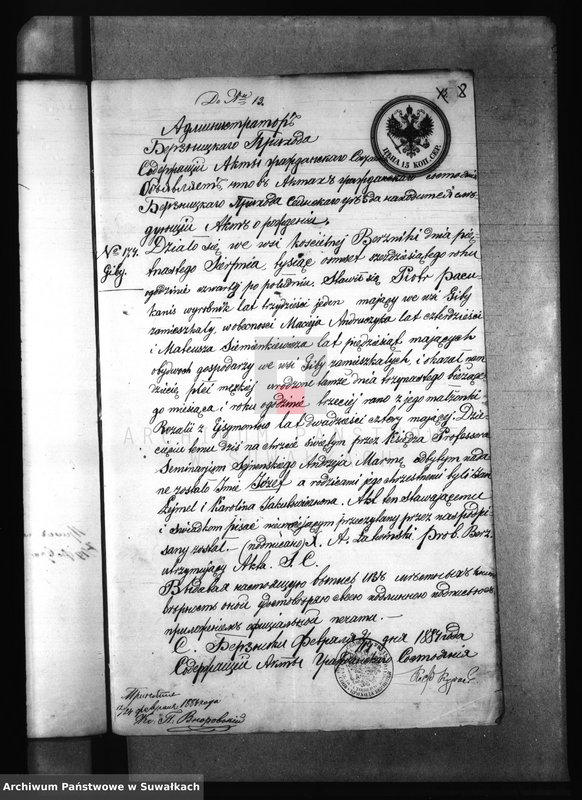 До № 13.
8
ЦѢНА 15 КОП. СЕР.
Администраторъ
Берзницкаго Прихода
Содержащій Акты Гражданскаго
Объявляетъ что въ Актахъ гражданскаго состоянія
Берзницкаго Прихода Сейнскаго уѣзда находится слѣ-
дующій Актъ о рожденіи.
№ 174.
Giby.
Działo się we wsi kościelnej Berzniki dnia pięt-
nastego Sierpnia tysiąc ośmset sześdziesiątego roku
o godzinie czwartej po południu. Stawił się Piotr
wyrobnik lat trzydzieści jeden mający we wsi Giby
zamieszkały, w obecności Macieja Andruczyka lat czterdzieści
i Mateusza Siemienkiewicza lat pięćdziesiąt mających
obydwóch gospodarzy we wsi Giby zamieszkałych, i okazał nam
dziecię płci męzkiej urodzone tamże dnia trzynastego bieżące-
go miesiąca i roku o godzinie trzeciej rano z jego małżonki
Rozalii z lat dwadzieścia cztery mającej. Dzie-
cięciu temu dziś na chrzcie świętym przez Księdza Professora
Seminaryum Sejneńskiego Andrzeja odbytym nada-
ne zostało Imie Józef a rodzicami jego chrzestnemi byli
i Karolina. Akt ten Stawającemu
i świadkom pisać nieumiejącym przeczytany przez nas podpi-
sany został. (podpisano) X. A. prob. Berz.
utrzymujący Akta S. C.
Выдавая настоящую выпись изъ
вѣрность оной удостовѣряю своею подлинною подписью съ
приложеніемъ оффиціальной печати.
С. Берзники Февраля дня 1887 года
Содержащій Акты Гражданскаго Состоянія
февраля 1887 года
Archiwum Państwowe w Suwałkach